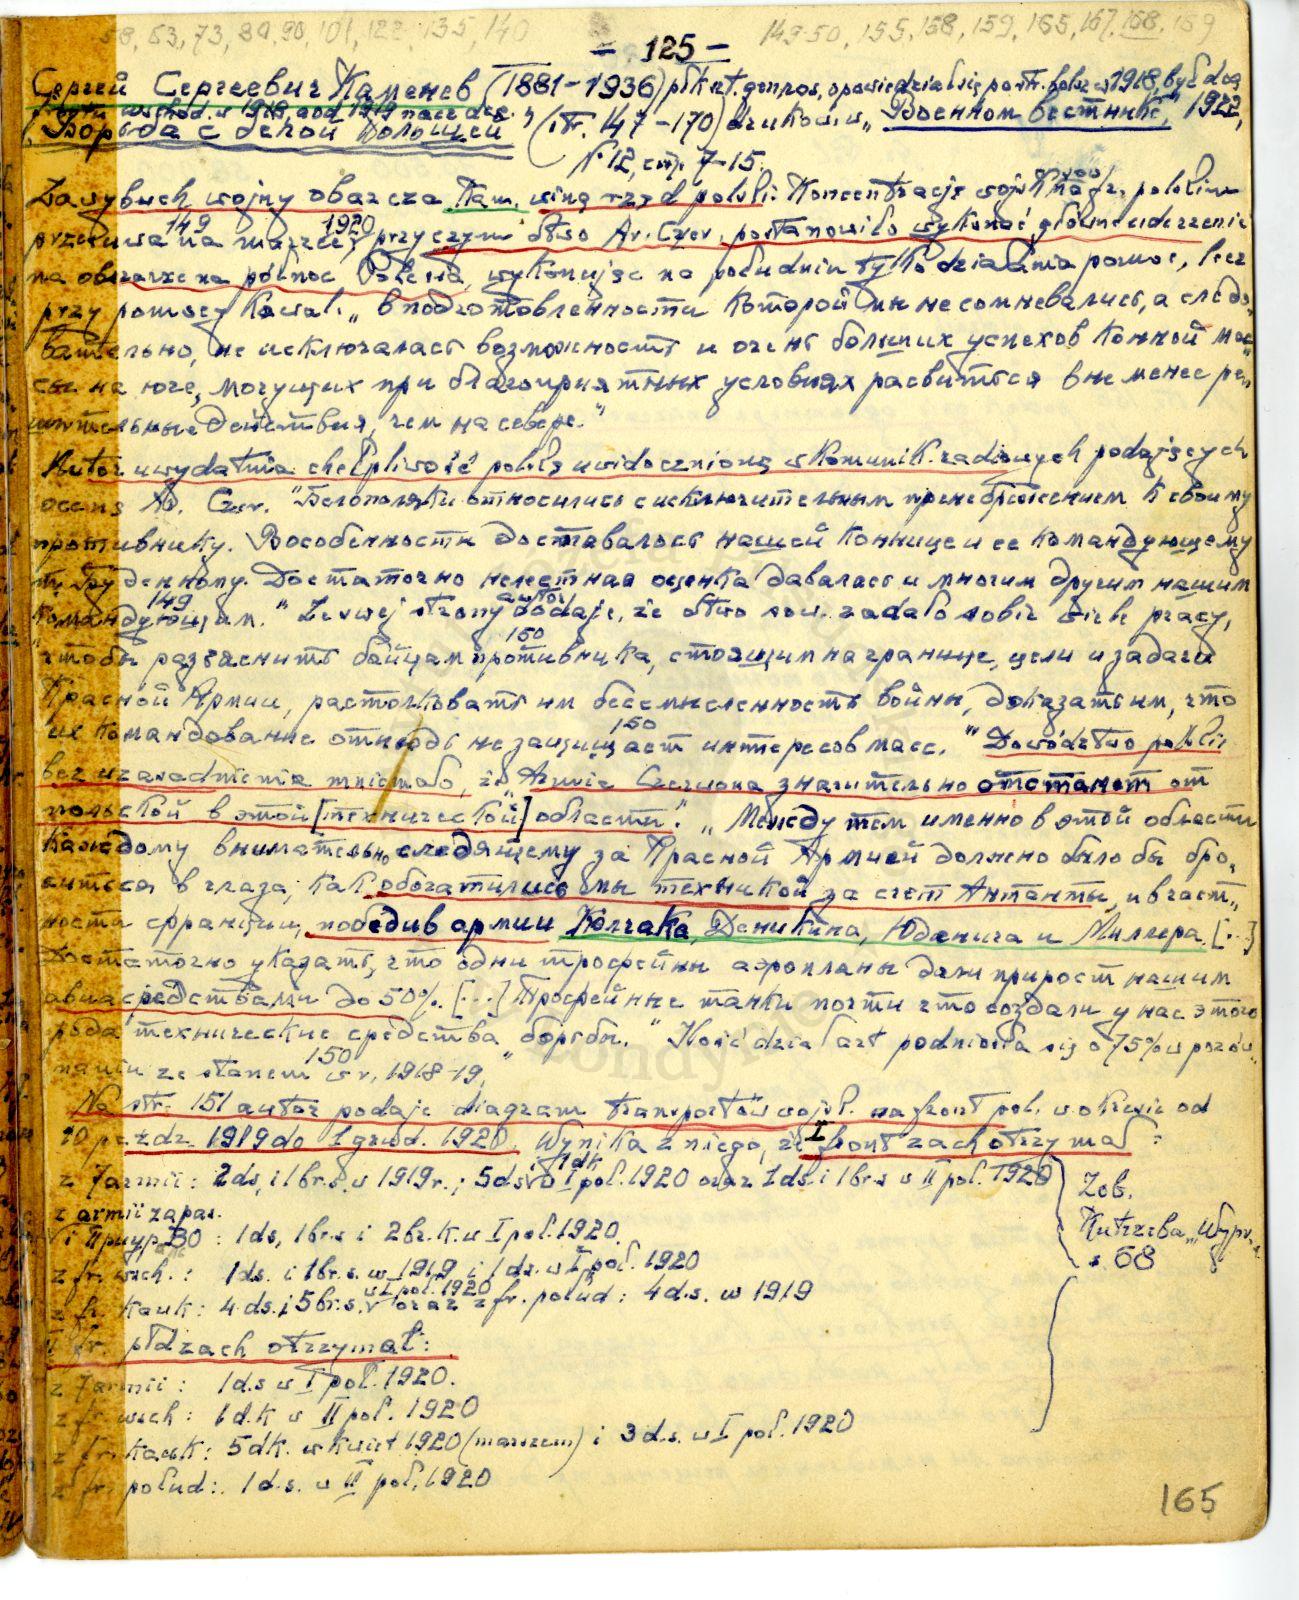 58, 63, 73, 80, 90, 101, 122, 135, 140
149-50, 155, 158, 159, 165, 167, 168, 169
– 125 –
Сергей Сергеевич Каменев (1881–1936) płk szt. gen. ros., opowiedział się po str. bolsz. w 1918, był dcą
frontu wschod. w 1918, a od 1919 nacz. dcą.
"Борьба с белой Польшей" (str. 147–170) druków. w "Военном вестнике", 1922,
№ 12, стр. 7–15.
Za wybuch wojny obarcza Kam. winą rząd polski. Koncentrację wojsk na fr. polskim
149 1920
przesuwa na marzec, przy czym dztwo Ar. Czer. postanowiło wykonać główne uderzenie
na obszarze na północ Polesia, wykonując na południu tylko działania pomoc., lecz
przy pomocy kawal. "в подготовленности которой мы не сомневались, а следо-
вательно, не исключалась возможность и очень больших успехов конной мас-
сы на юге, могущих при благоприятных условиях развиться в не менее ре-
шительные действия, чем на севере."
Autor uwydatnia chełpliwość polską uwidocznioną w komunik. radiowych podających
ocenę Ar. Czer. "Белополяки относились с исключительным пренебрежением к своему
противнику. В особенности доставалось нашей коннице и ее командующему
т. Буденному. Достаточно нелестная оценка давалась и многим другим нашим
149
командующим." Ze swej strony autor dodaje, że dztwo sow. zadało sobie wiele pracy,
150
"чтобы разъяснить бойцам противника, стоящим на границе, цели и задачи
Красной Армии, растолковать им бессмысленность войны, доказать им, что
150
их командование отнюдь не защищает интересов масс." Dowództwo polskie
bez uzasadnienia mniemało, że "Armia Czerwona значительно отстанет от
польской в этой [технической] области". "Между тем именно в этой области
каждому внимательно следящему за Красной Армией должно было бы бро-
ситься в глаза, как обогатились мы техникой за счет Антанты, и в част-
ности Франции, победив армии Колчака, Деникина, Юденича и Миллера. [...]
Достаточно указать, что одни трофейны аэропланы дали прирост нашим
авиасредствами до 50%. [...] Трофейные танки почти что создали у нас этого
рода технические средства борьбы." Ilość dział art. podniosła się o 75% w porów-
150
naniu ze stanem w r. 1918–19.
Na str. 151 autor podaje diagram transportów wojsk. na front pol. w okresie od
10 paźdz. 1919 do 1 grud. 1920. Wynika z niego, że I front zach otrzymał:
z 7 armii: 2 ds. i 1 br. s. w 1919 r.; 5 ds. i 1 dk w I poł. 1920 oraz 1 ds. i 1 br. s w II poł. 1920
z armii zapas.
i Приур. ВО: 1 ds, 1 br. s i 2 br. k. w I poł. 1920.
z fr. wsch.: 1 ds. i 1 br. s. w 1919 i 1 ds. w I poł. 1920
z fr. kauk: 4 ds. i 5 br. s. w I poł. 1920 oraz z fr. połud: 4 d.s. w 1919
Zob.
Kutrzeba "Wypr.
s. 68
II fr. płdzach otrzymał:
z 7 armii: 1 d.s w I poł. 1920.
z fr. wsch: 1 d.k w II poł. 1920
z fr. kauk: 5 dk. w kwiet 1920 (marszem) i 3 d.s. w I poł. 1920
z fr. połud: 1 d.s. w II poł. 1920
165